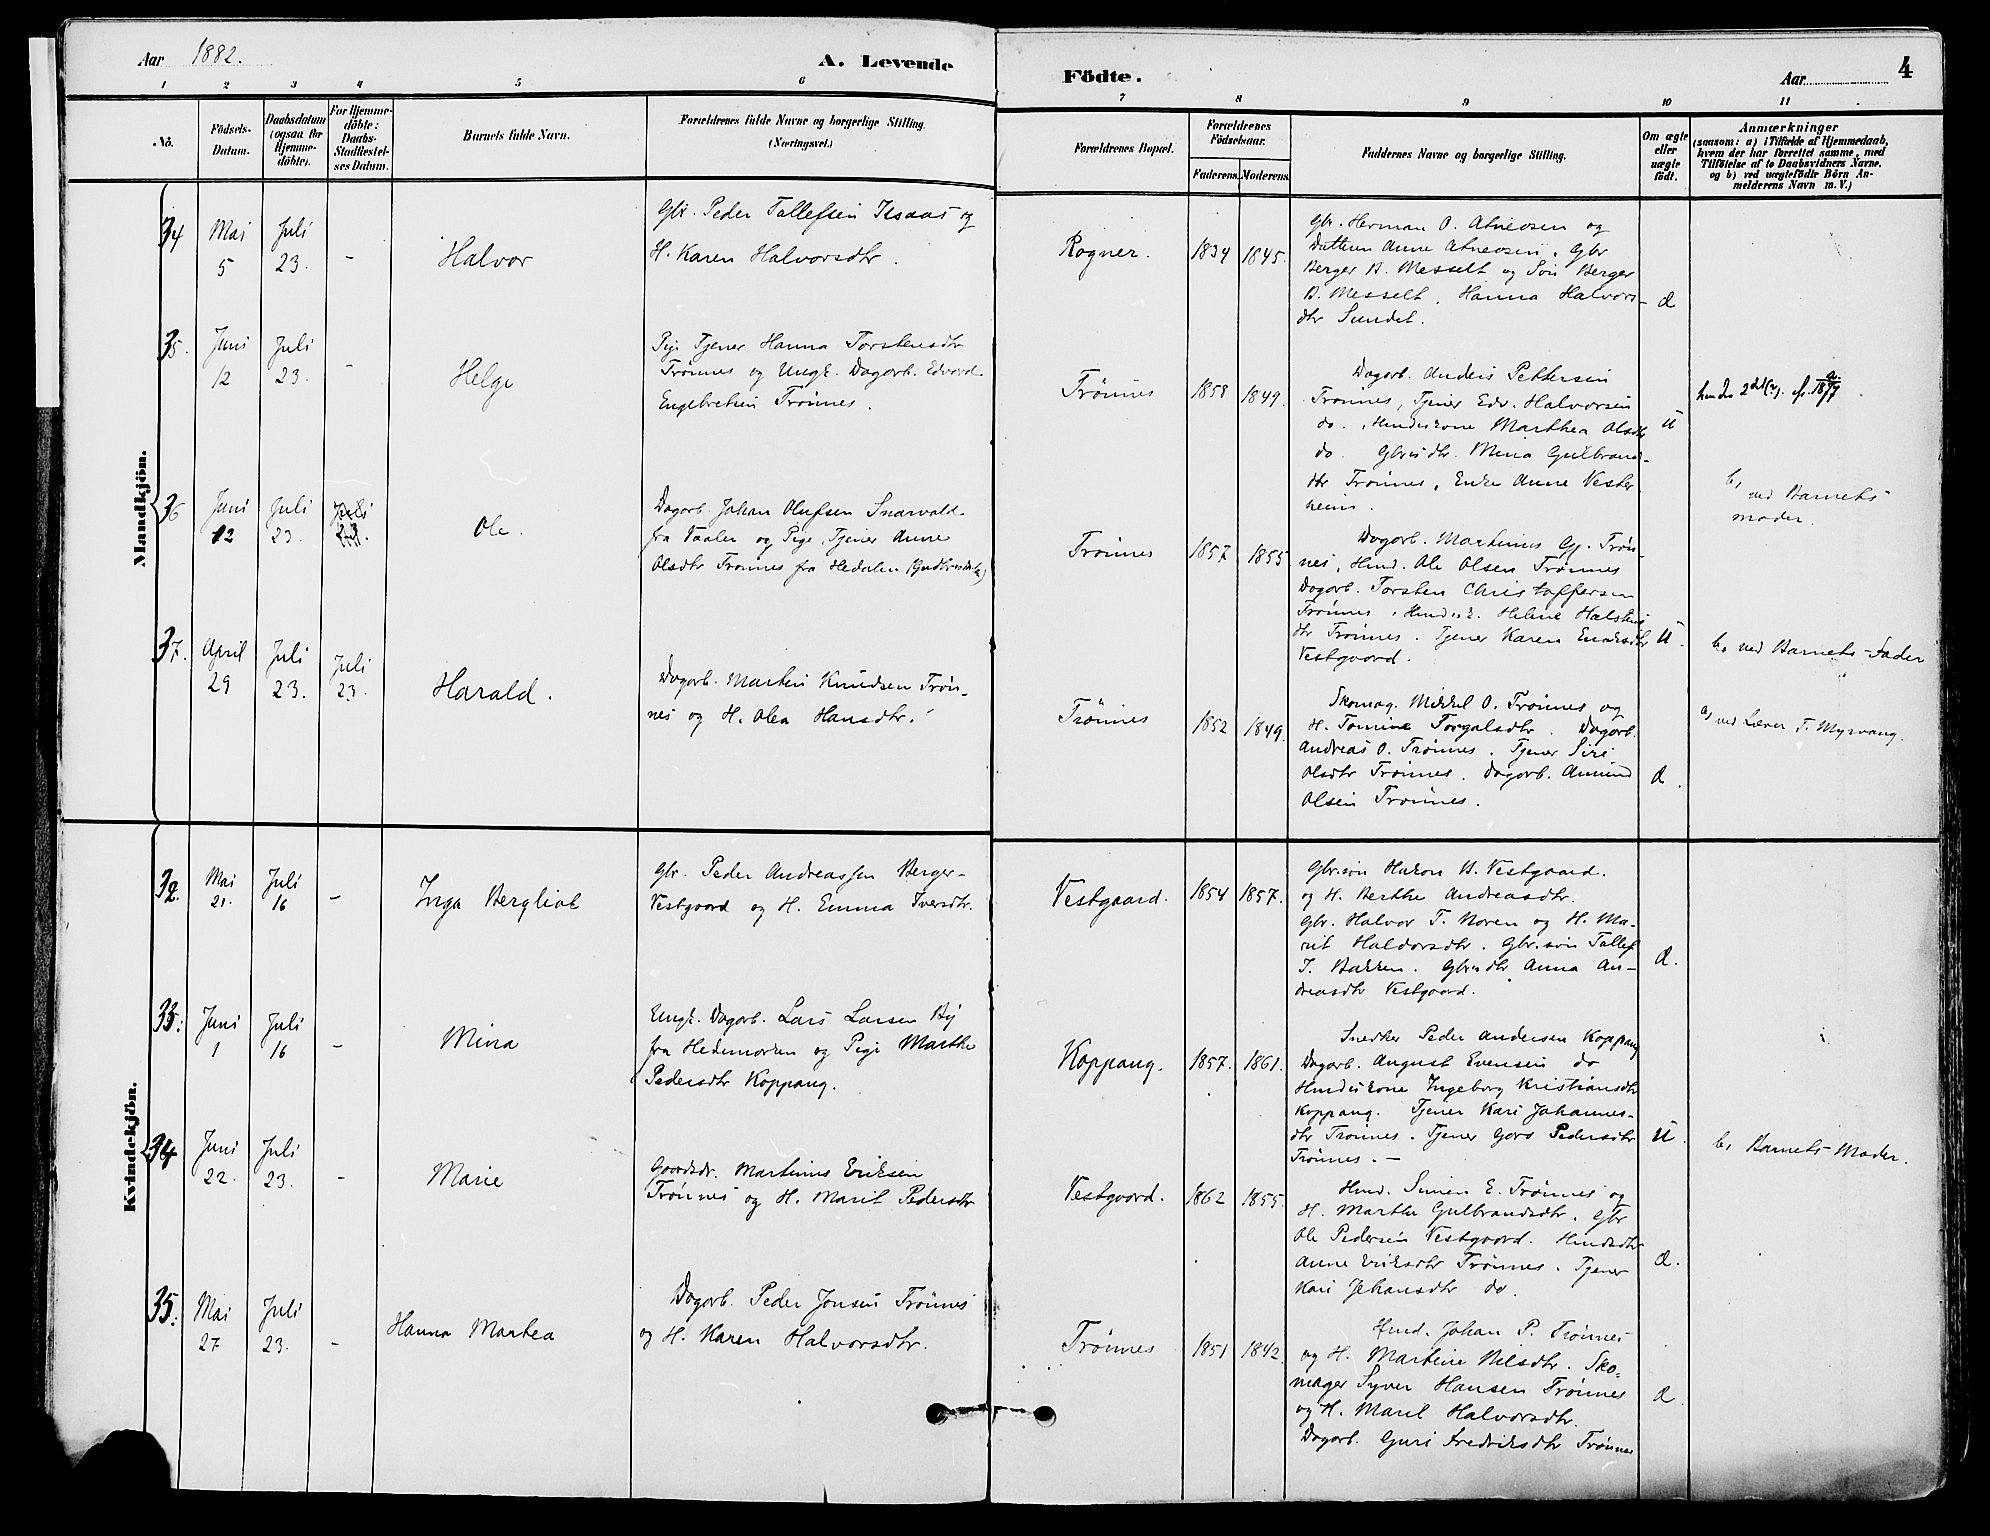 Aar 1882.
A. Levende Födte.
Aar
4
1 2 3 4 5 6 7 8 9 10 11
No.
Födsels-Datum.
Daabsdatum (ogsaa for Hjemme-döbte).
For Hjemme-döbte: Daabs-Stadfestel-ses Datum.
Barnets fulde Navn.
Forældrenes fulde Navne og borgerlige Stilling. (Næringsvei.)
Forældrenes Bopæl.
Forældrenes Födselsaar.
Faderens. Moderens.
Faddernes Navne og borgerlige Stilling.
Om ægte eller uægte födt.
Anmærkninger
(saasom: a) i Tilfælde af Hjemmedaab,
hvem der har forrettet samme, med
Tilföielse af to Daabsvidners Navne.
og b) ved uægtefödte Börn An-
melderens Navn m. V.)
Mandkjön.
34 Mai 5 Juli 23. - Halvor
Gbr. Peder Tollefsen Isaas og
H. Karen Halvorsdtr.
Rogner. 1834 1845.
Gbr. Herman O. Atneosen og
Datteren Anne Atneosen, Gbr
Berger B. Messelt og Søn Berger
B. Messelt, Hanna Halvors-
dtr Sundet.
35. Juni 12 Juli 23. - Helge
Pige Tjener Hanna Torstensdtr
Trønnes og Ungk. Dagarb. Edvard
Engebretsen Trønnes.
Trønnes 1858 1849.
Dagarb. Anders Pettersen
Trønnes, Tjener Edv. Halvorsen
do. Husmdskone Marthea Olsdtr
do. Gbrsdtr. Mina Gulbrands-
dtr Trønnes, Enke Anne Vester
heim.
U
36 Juni 12 Juli 23. Juli 23. Ole.
Dagarb. Johan Olufsen Snarvold
fra Vaaler og Pige, Tjener Anne
Olsdtr Trønnes fra Hedalen
Trønnes 1857 1855
Dagarb. Martinus Gj. Trøn-
nes, Husmd. Ole Olsen Trønnes
Dagarb. Torsten Christoffersen
Trønnes, Helene Halstens
dtr Trønnes. Tjener Karen Endresdtr
Vestgaard.
U.
b, ved Barnets
moder.
37. April 29 Juli 23. Juli 23. Harald.
Dagarb. Martin Knudsen Trøn-
nes og H. Olea Hansdtr.
Trønnes 1852 1849.
Skomag. Mikkel O. Trønnes og
H. Tomine Torgalsdtr. Dagarb.
Andreas O. Trønnes. Tjener Siri
Olsdtr Trønnes. Dagarb. Amund
Olsen Trønnes.
b, ved Barnets-Fader
a) ved Lærer T. Myrvang.
Kvindekjön.
32. Mai 21. Juli 16 - Inga Bergliot
Gbr. Peder Andreassen Berger-
Vestgaard og H. Emma Iversdtr.
Vestgaard. 1854 1857.
Gbr.søn Hakon B. Vestgaard.
og H. Berthe Andreasdtr.
Gbr. Halvor T. Noren og H. Ma-
rit Haldorsdtr. Gbr.søn Tollef
T. Bakken. Gbrsdtr Anna An-
dreasdtr Vestgaard.
33. Juni 1 Juli 16 - Mina
Ungk. Dagarb. Lars Larsen By
fra Hedemarken og Pige Marthe
Pedersdtr Koppang.
Koppang. 1857. 1861.
Snedker Peder Andersen Koppang
Dagarb. August Evensen do
Husmdskone Ingeborg Kristiansdtr
Koppang. Tjener Kari Johannes-
dtr Trønnes. Tjener Goro Pedersdtr
Trønnes. -
U.
b, Barnets-Moder.
34 Juni 22. Juli 23. - Marie
Gaardbr. Martinus Eriksen
Trønnes og H. Marit Pedersdtr
Vestgaard. 1862 1855.
Husmd. Simen E. Trønnes og
H. Marthe Gulbrandsdtr. Gbr
Ole Pedersen Vestgaard. Husmdsdtr
Anne Eriksdtr Trønnes. Tjener
Kari Johansdtr do.
35. Mai 27 Juli 23. - Hanna Martea
Dagarb. Peder Jonsen Trønnes
og H. Karen Halvorsdtr.
Trønnes 1851 1842.
Husmd. Johan P. Trønnes
og H. Martine Nilsdtr. Sko-
mager Syver Hansen Trønnes
og H. Maril Halvorsdtr.
Dagarb. Guri Fredriksdtr Trønnes